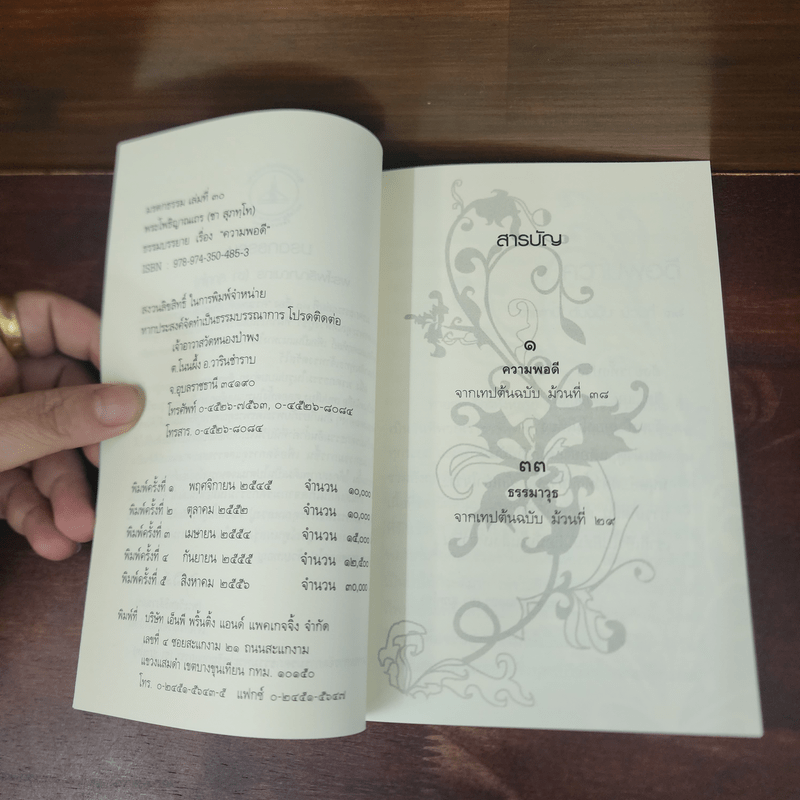 มรดกธรรม เล่มที่ ๓๐
พระโพธิญาณเถร (ชา สุภทฺโท)
ธรรมบรรยาย เรื่อง "ความพอดี"
ISBN 978-974-350-485-3
สงวนลิขสิทธิ์ ในการพิมพ์จำหน่าย
หากประสงค์จัดทำเป็นธรรมบรรณาการ โปรดติดต่อ
เจ้าอาวาสวัดหนองป่าพง
ต.โนนผึ้ง อ.วารินชำราบ
จ.อุบลราชธานี ๓๔๑๙๐
โทรศัพท์ ๐-๔๕๒๖-๗๕๖๓, ๐-๔๕๒๖-๘๐๘๔
โทรสาร. ๐-๔๕๒๖-๘๐๘๔
พิมพ์ครั้งที่ ๑ พฤศจิกายน ๒๕๔๕ จำนวน ๑๐,๐๐๐
พิมพ์ครั้งที่ ๒ ตุลาคม ๒๕๕๒ จำนวน ๑๐,๐๐๐
พิมพ์ครั้งที่ ๓ เมษายน ๒๕๕๔ จำนวน ๑๕,๐๐๐
พิมพ์ครั้งที่ ๔ กันยายน ๒๕๕๕ จำนวน ๑๒,๕๐๐
พิมพ์ครั้งที่ ๕ สิงหาคม ๒๕๕๖ จำนวน ๓๐,๐๐๐
พิมพ์ที่ บริษัท เอ็นพี พริ้นติ้ง แอนด์ แพคเกจจิ้ง จำกัด
เลขที่ ๔ ซอยสะแกงาม ๒๑ ถนนสะแกงาม
แขวงแสมดำ เขตบางขุนเทียน กทม. ๑๐๑๕๐
โทร. ๐-๒๔๕๑-๕๖๔๓-๕ แฟกซ์ ๐-๒๔๕๑-๕๖๔๗
สารบัญ
๑
ความพอดี
จากเทปต้นฉบับ ม้วนที่ ๓๘
๓๓
ธรรมาวุธ
จากเทปต้นฉบับ ม้วนที่ ๒๙